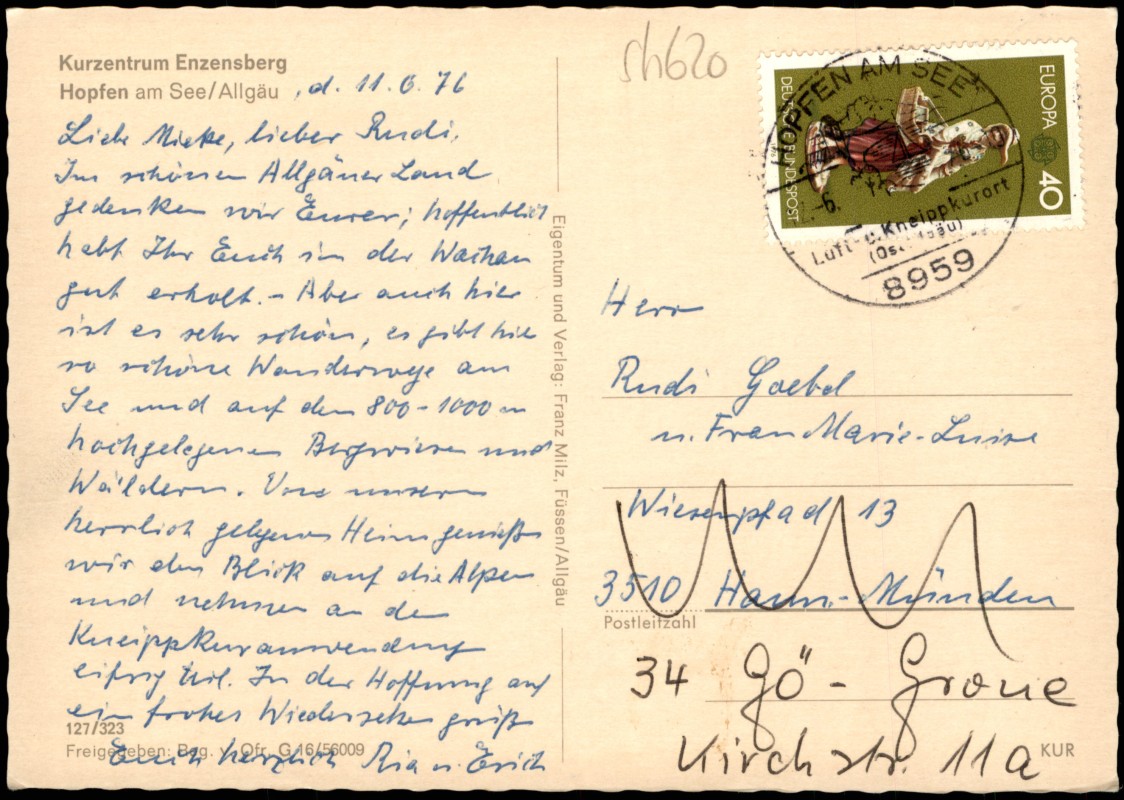 Kurzentrum Enzensberg
Hopfen am See/Allgäu , d. 11.6.76
Liebe Mieke, lieber Rudi,
Im schönen Allgäuer Land
gedenken wir Eurer; hoffentlich
habt Ihr Euch in der Wachau
gut erholt. - Aber auch hier
ist es sehr schön, es gibt hier
so schöne Wanderwege am
See und auf den 800-1000 m
hochgelegenen Bergwiesen und
Wäldern. Von unserm
herrlich gelegenen Heim genießen
wir den Blick auf die Alpen
und nehmen an den
Kneippkuranwendungen
eifrig teil. In der Hoffnung auf
ein frohes Wiedersehen grüßen
Euch herzlich Ria u. Erich
127/323
Freigegeben: Reg. v. Ofr. G 16/56009
Eigentum und Verlag: Franz Milz, Füssen/Allgäu
sh620
HOPFEN AM SEE
-6.
Luft- u. Kneippkurort
(Ostallgäu)
8959
DEUTSCHE BUNDESPOST
EUROPA
40
Herrn
Rudi Goebel
u. Frau Marie-Luise
Wiesenpfad 13
3510 Hann.-Münden
Postleitzahl
34 Gö - Grone
Kirchstr. 11a
KUR